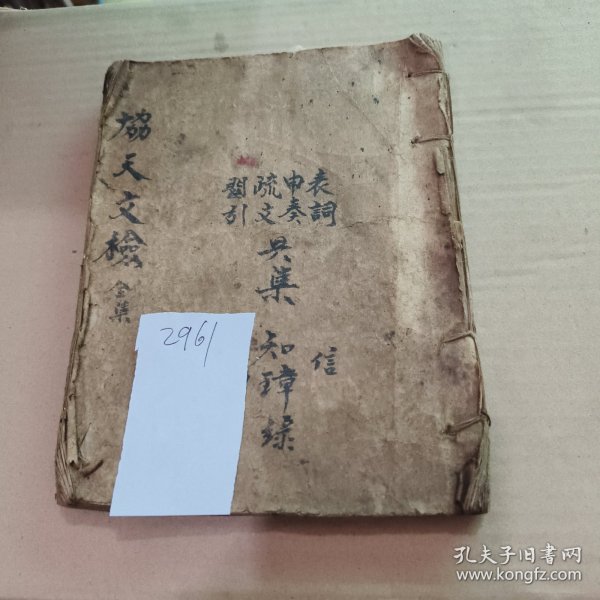 表詞
申奏
疏文
關引
共集
知璋録
信
協天文檢全集
2961
孔夫子旧书网
www.kongfz.com